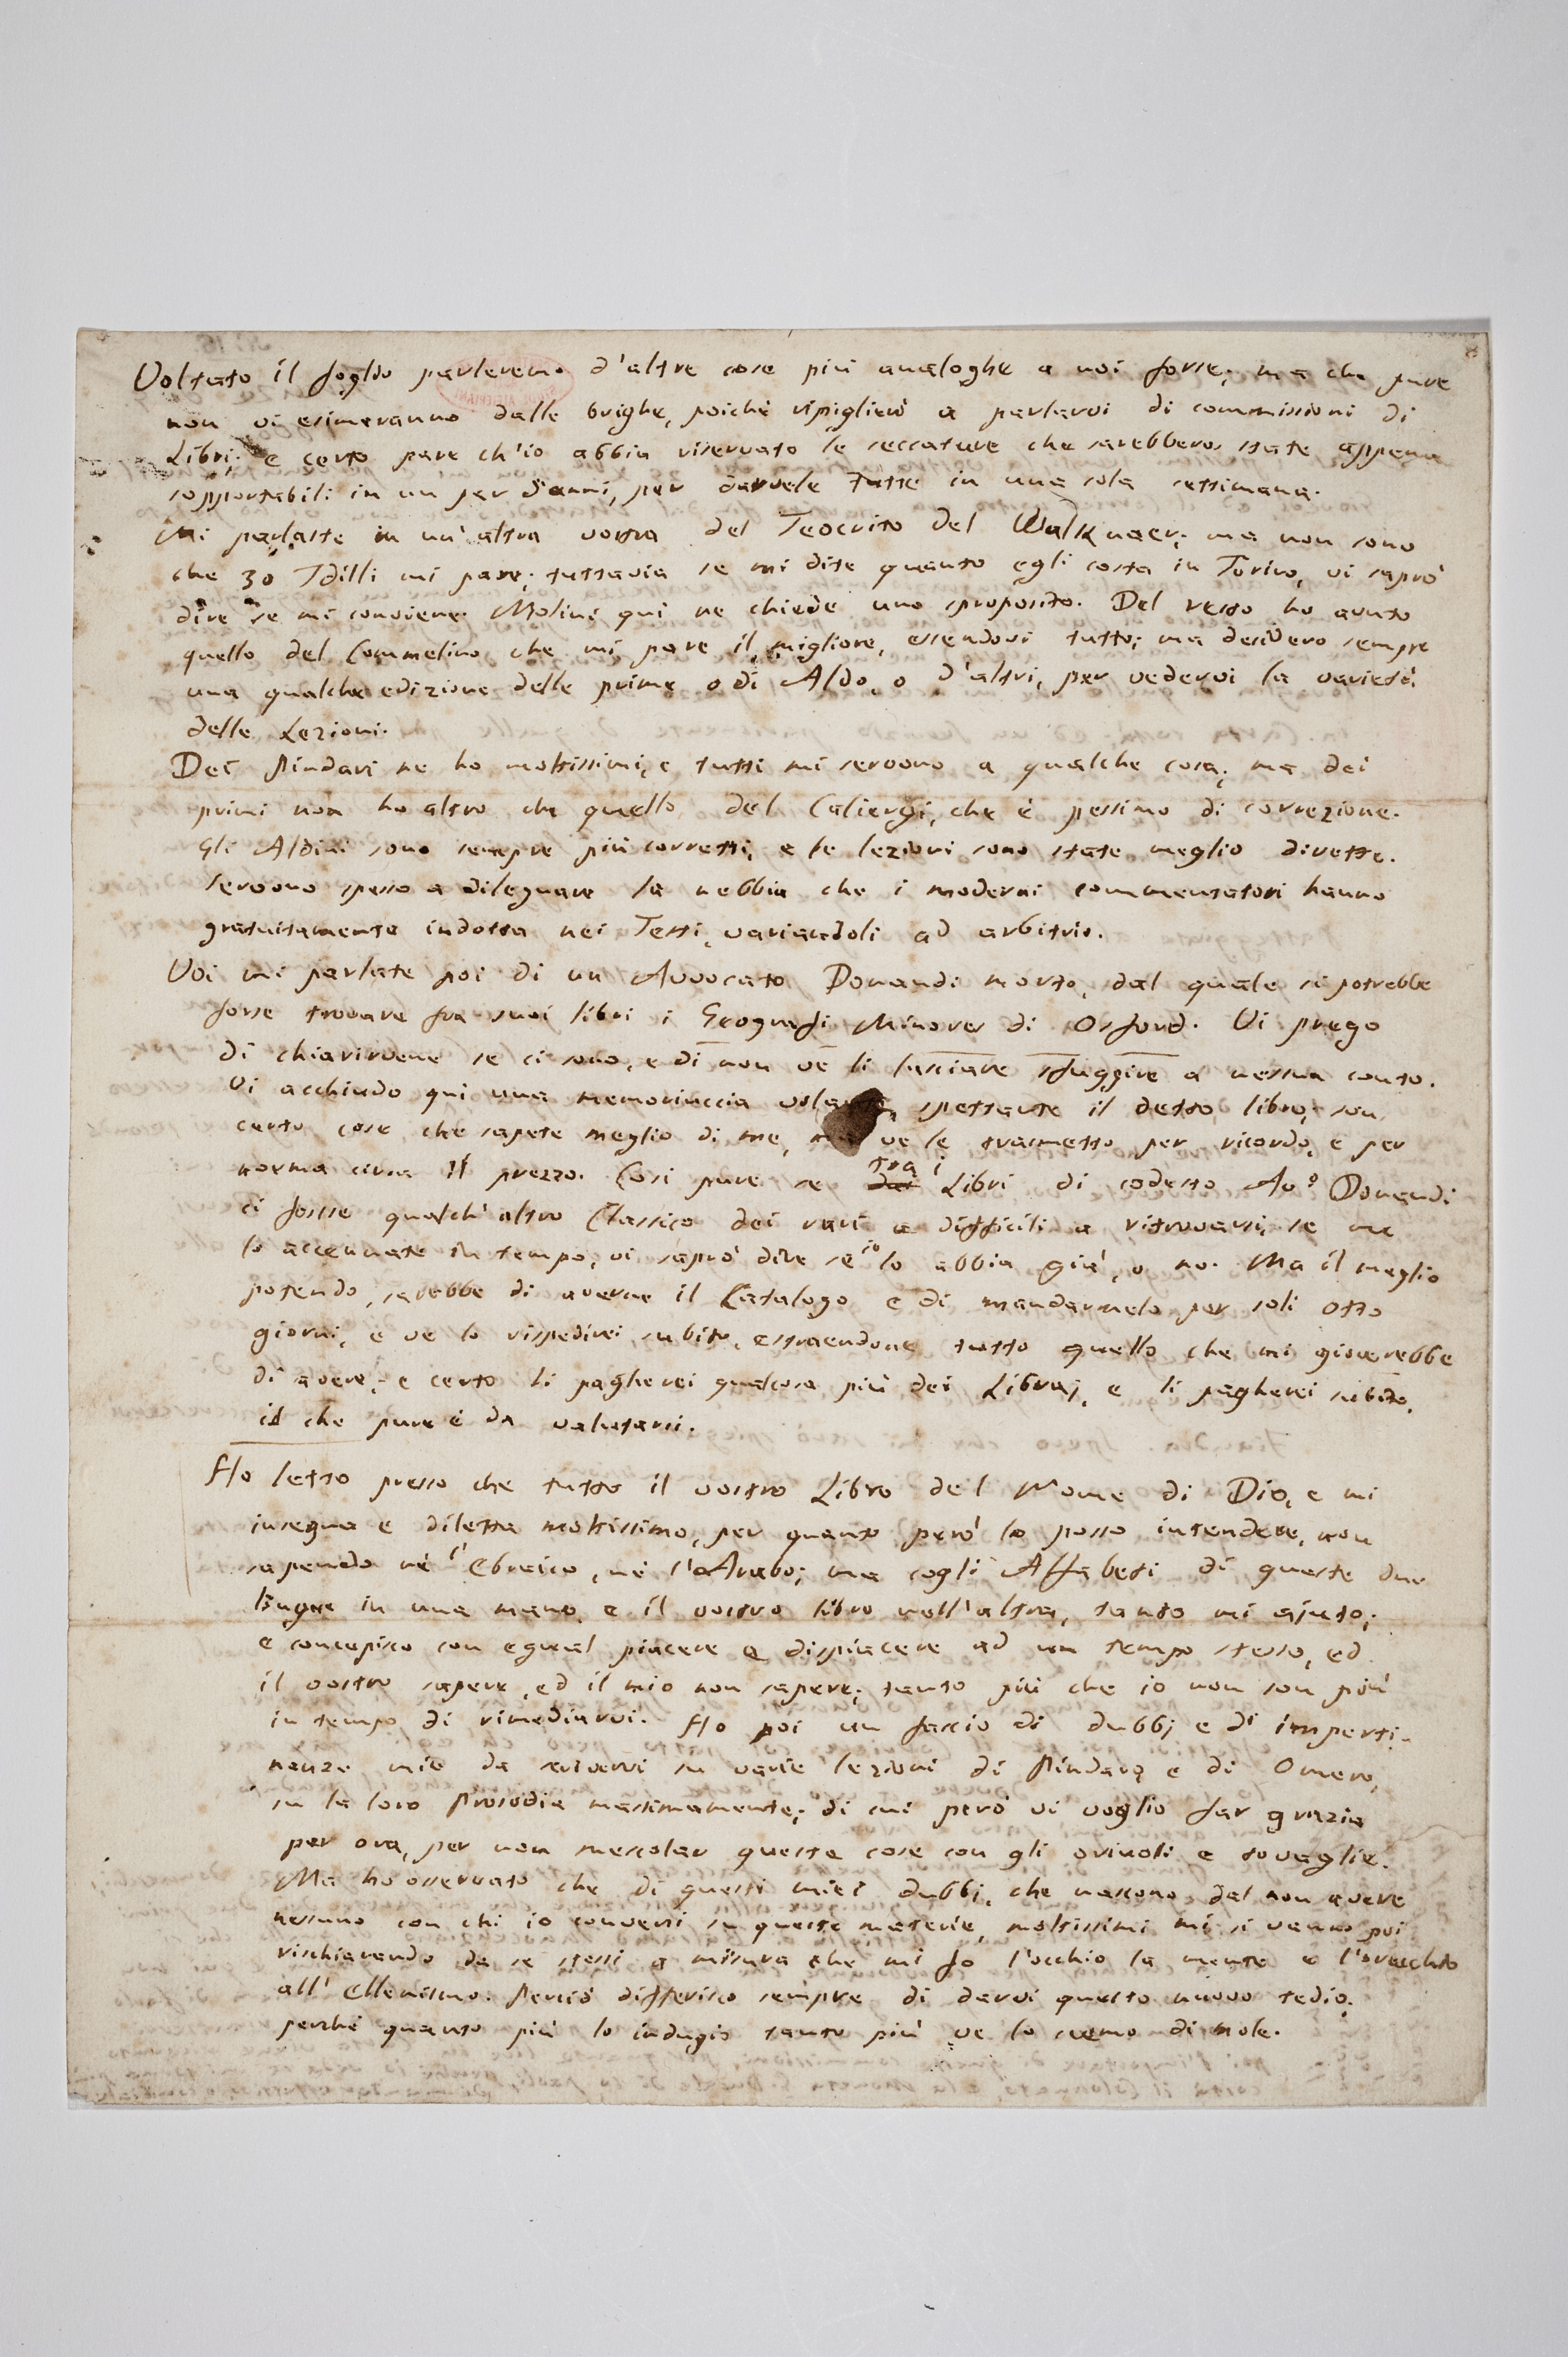 Voltato il foglio parleremo d'altre cose più analoghe a noi forse; ma che pure
non vi esimeranno dalle brighe, poichè ripiglierò a parlarvi di commissioni di
Libri; e certo pare ch'io abbia riservato le seccature che sarebbero state appena
sopportabili in un par d'anni, per darvele tutte in una sola settimana.
Mi parlaste in un'altra vostra del Teocrito del Walknaer; ma non sono
che 30 Idilli mi pare; tuttavia se mi dite quanto egli costa in Torino, vi saprò
dire se mi conviene. Molini qui ne chiede uno sproposito. Del resto ho avuto
quello del Commelino che mi pare il migliore, essendovi tutto; ma desidero sempre
una qualche edizione delle prime o di Aldo, o d'altri, per vedervi la varietà
delle Lezioni.
Dei Pindari ne ho moltissimi, e tutti mi servono a qualche cosa; ma dei
primi non ho altro che quello del Caliergi, che è pessimo di correzione.
Gli Aldini sono sempre più corretti, e le lezioni sono state meglio dirette.
Servono spesso a dileguare la nebbia che i moderni commentatori hanno
gratuitamente indotta nei Testi, variandoli ad arbitrio.
Voi mi parlate poi di un Avvocato Donaudi morto, dal quale si potrebbe
forse trovare fra suoi libri i Geografi Minores di Osford. Vi prego
di chiarirvene se ci sono, e di non ve li lasciare sfuggire a nessun conto.
Vi acchiudo qui una memoriuccia volante, spettante il detto libro; son
certo cose che sapete meglio di me, ma ve le trasmetto per ricordo, e per
norma circa il prezzo. Così pure se tra i Libri di codesto Av.º Donaudi
ci fosse qualch'altro Classico dei rari e difficili a ritrovarsi, se me
lo accennate in tempo, vi saprò dire se io lo abbia già, o no. Ma il meglio
potendo, sarebbe di averne il Catalogo e di mandarmelo per soli otto
giorni, e ve lo rispedirei subito, estraendone tutto quello che mi gioverebbe
di avere; e certo li pagherei qualcosa più dei Libraj, e li pagherei subito,
il che pure è da valutarsi.
Ho letto presso che tutto il vostro Libro del Nome di Dio, e mi
insegna e diletta moltissimo, per quanto però lo posso intendere, non
sapendo nè l'Ebraico, nè l'Arabo; ma cogli Alfabeti di queste due
lingue in una mano, e il vostro libro nell'altra, tanto mi ajuto;
e concepisco con egual piacere e dispiacere ad un tempo stesso, ed
il vostro sapere, ed il mio non sapere; tanto più che io non son più
in tempo di rimediarvi. Ho poi un fascio di dubbj e di imperti-
nenze mie da scrivervi su varie lezioni di Pindaro e di Omero,
su la loro Prosodia massimamente; di cui però vi voglio far grazia
per ora, per non mescolar queste cose con gli orivoli e tovaglie.
Ma ho osservato che di questi miei dubbj, che nascono dal non avere
nessuno con chi io conversi su queste materie, moltissimi mi si vanno poi
rischiarendo da se stessi a misura che mi fo l'occhio la mente e l'orecchio
all'Ellenismo. Perciò differisco sempre di darvi questo nuovo tedio;
perchè quanto più lo indugio tanto più ve lo scemo di mole.